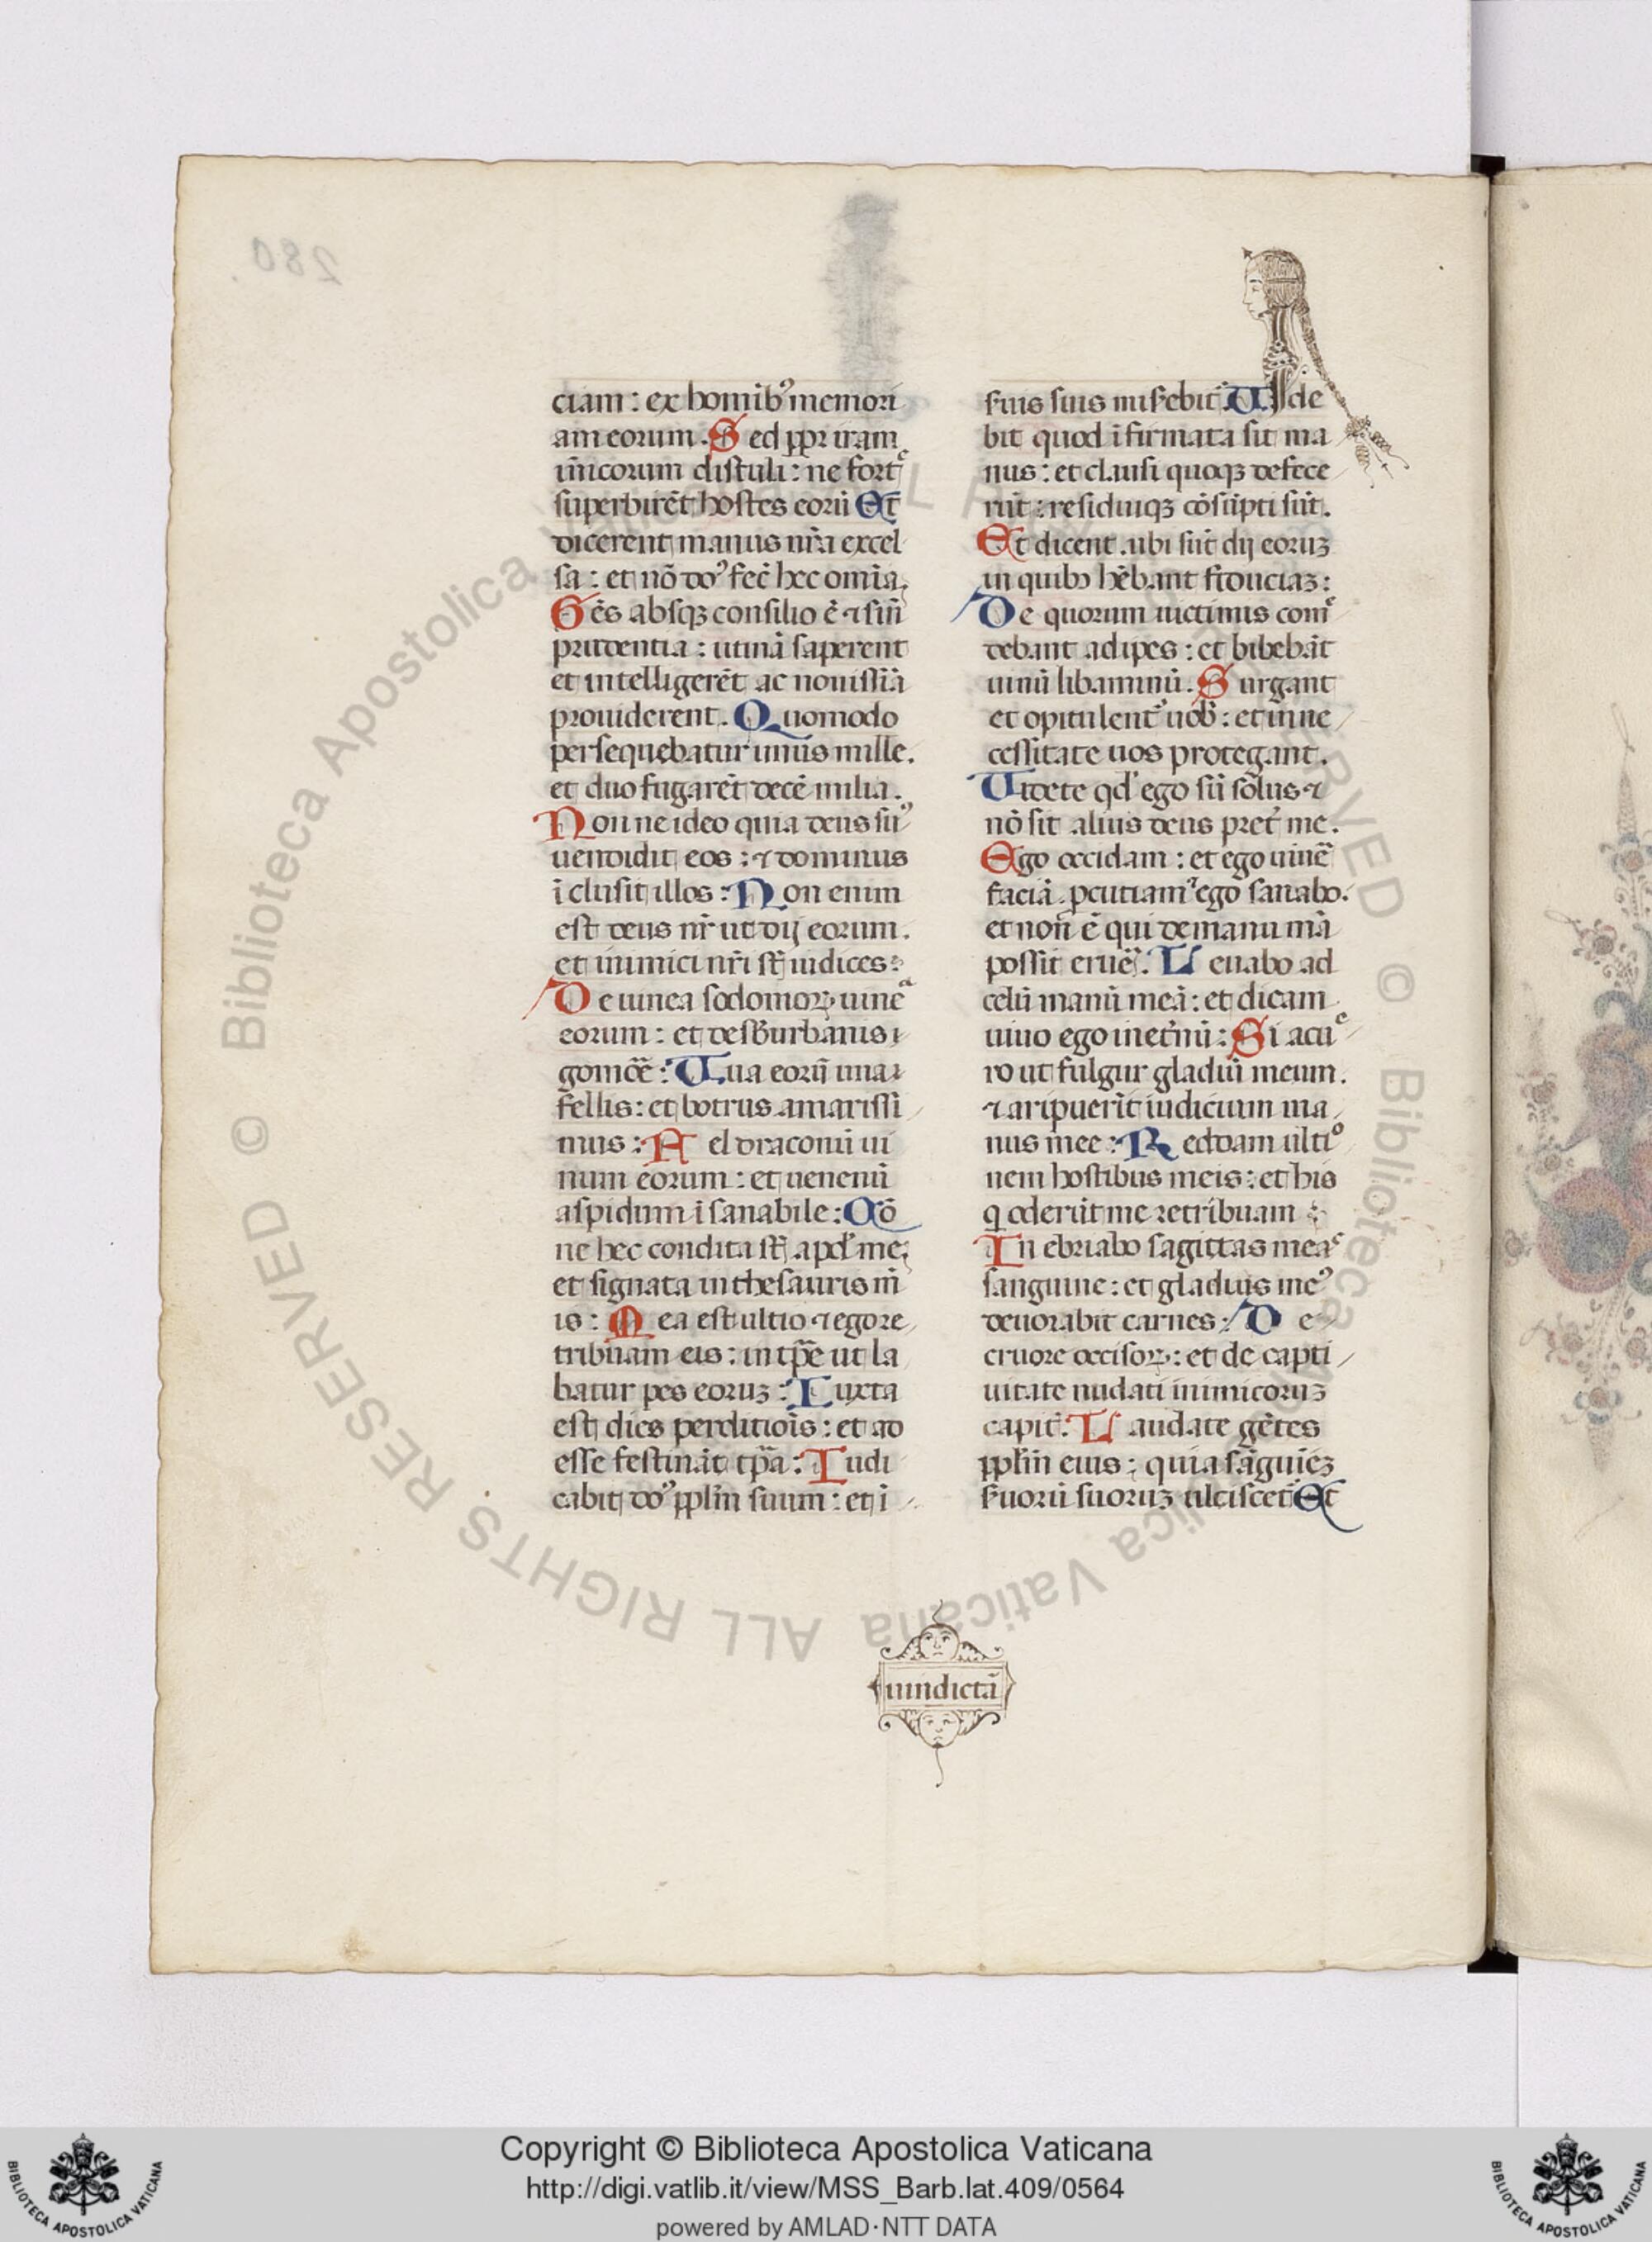 280
ciam : ex homīb⁹ memori
am eorum . Sed ꝓpr iram
inīcorum distuli : ne forte
superbirēt hostes eorū Et
dicerent manus nr̄a excel
sa : et nō do⁹ fec̄ hec omīa
Gēs absqꝫ consilio ē ⁊ sin̄
prudentia : utinā saperent
et intelligerēt ac nouissīā
prouiderent . Quomodo
persequebatur unus mille .
et duo fugarēt decē milia .
Non ne ideo quia deus su⁹
uendidit eos : ⁊ dominus
īclusit illos : Non enim
est deus nr̄ ut dij eorum .
et inimici nr̄i st̄ iudices :
De uinea sodomoꝝ uinea
eorum : et de sburbanis
gomore : Uua eorū uua
fellis : et botrus amarissi
mus : Fel draconū ui
num eorum : et uenenū
aspidum īsanabile : Nō
ne hec condita st̄ apd̄ me
et signata in thesauris m̄
is : Mea est ultio ⁊ ego re
tribuam eis : in tp̄e ut la
batur pes eoruꝫ : Iuxta
est dies perditiōis : et ad
esse festināt tp̄a : Iudi
cabit do⁹ pplm̄ suum : et ī
suis suis misebit̄ . Uide
bit quod īfirmata sit ma
nus : et clausi quoqꝫ defece
rūt : residuiqꝫ cōsūpti sūt .
Et dicent . ubi sūt dij eoruꝫ
in quibꝫ hēbant fiduciaꝫ :
De quorum uictimis come
debant adipes : et bibebāt
uinū libaminū . Surgant
et opitulent̄ uob̄ : et in ne
cessitate uos protegant .
Uidete qd̄ ego sū solus ⁊
nō sit alius deus pret̄ me .
Ego occidam : et ego uiuē
faciā . ꝑcutiam ⁊ ego sanabo .
et non̄ ē qui de manu mā
possit eruē . Leuabo ad
celū manū meā : et dicam
uiuo ego in et̄nū : Si acue
ro ut fulgur gladiū meum .
⁊ aripuerīt iudicium ma
nus mee : Reddam ultio
nem hostibus meis : et his
q̄ oderūt me retribuam :
In ebriabo sagittas meas
sanguine : et gladius me⁹
deuorabit carnes : De
cruore occisoꝝ : et de capti
uitate nudati inimicoruꝫ
capit̄ . Laudate gētes
pplm̄ eius : quia sāguīeꝫ
suorū suoruꝫ ulciscet̄ Et
uindictā
© Biblioteca Apostolica Vaticana ALL RIGHTS RESERVED
© Biblioteca Apostolica Vaticana ALL RIGHTS RESERVED
Copyright © Biblioteca Apostolica Vaticana
http://digi.vatlib.it/view/MSS_Barb.lat.409/0564
powered by AMLAD·NTT DATA
BIBLIOTECA APOSTOLICA VATICANA
BIBLIOTECA APOSTOLICA VATICANA